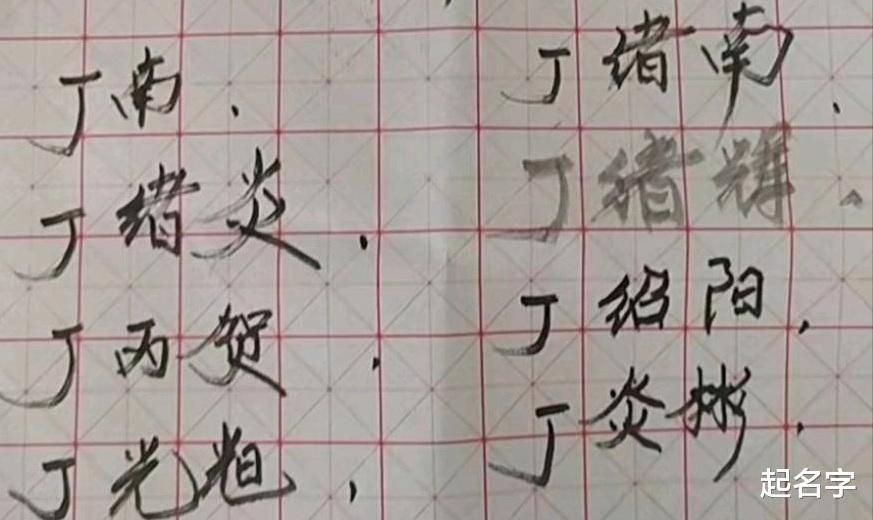 丁南.
丁绪炎.
丁丙贺.
丁光
丁绪南.
丁绪辉.
丁绍阳.
丁炎彬.
起名字